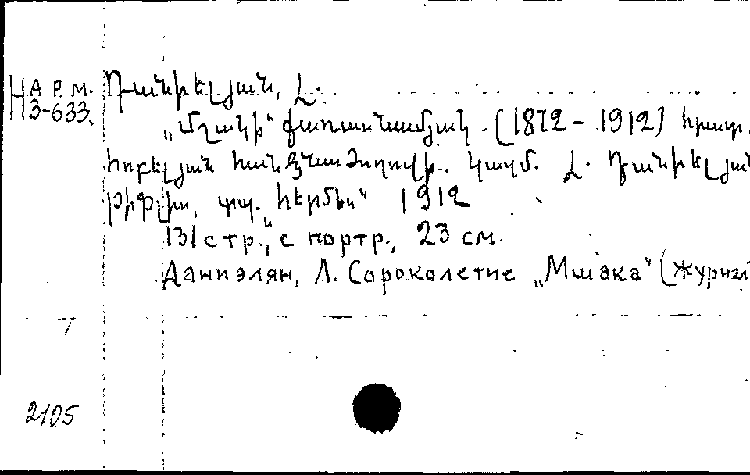 АРМ.
Н 3-633.
Դանիելյան, Լ.
„Մշակի“ քառասնամյակ. (1872 - 1912) հրատ.
հոբելյան հանձնաժողովի. կազմ. Լ. Դանիելյան
Թիֆլիս, տպ. „Հերմես“ 1912
131 стр., с портр., 23 см.
Даниэлян, Л. Сорокалетие „Мшака“ (журнал
7
2105